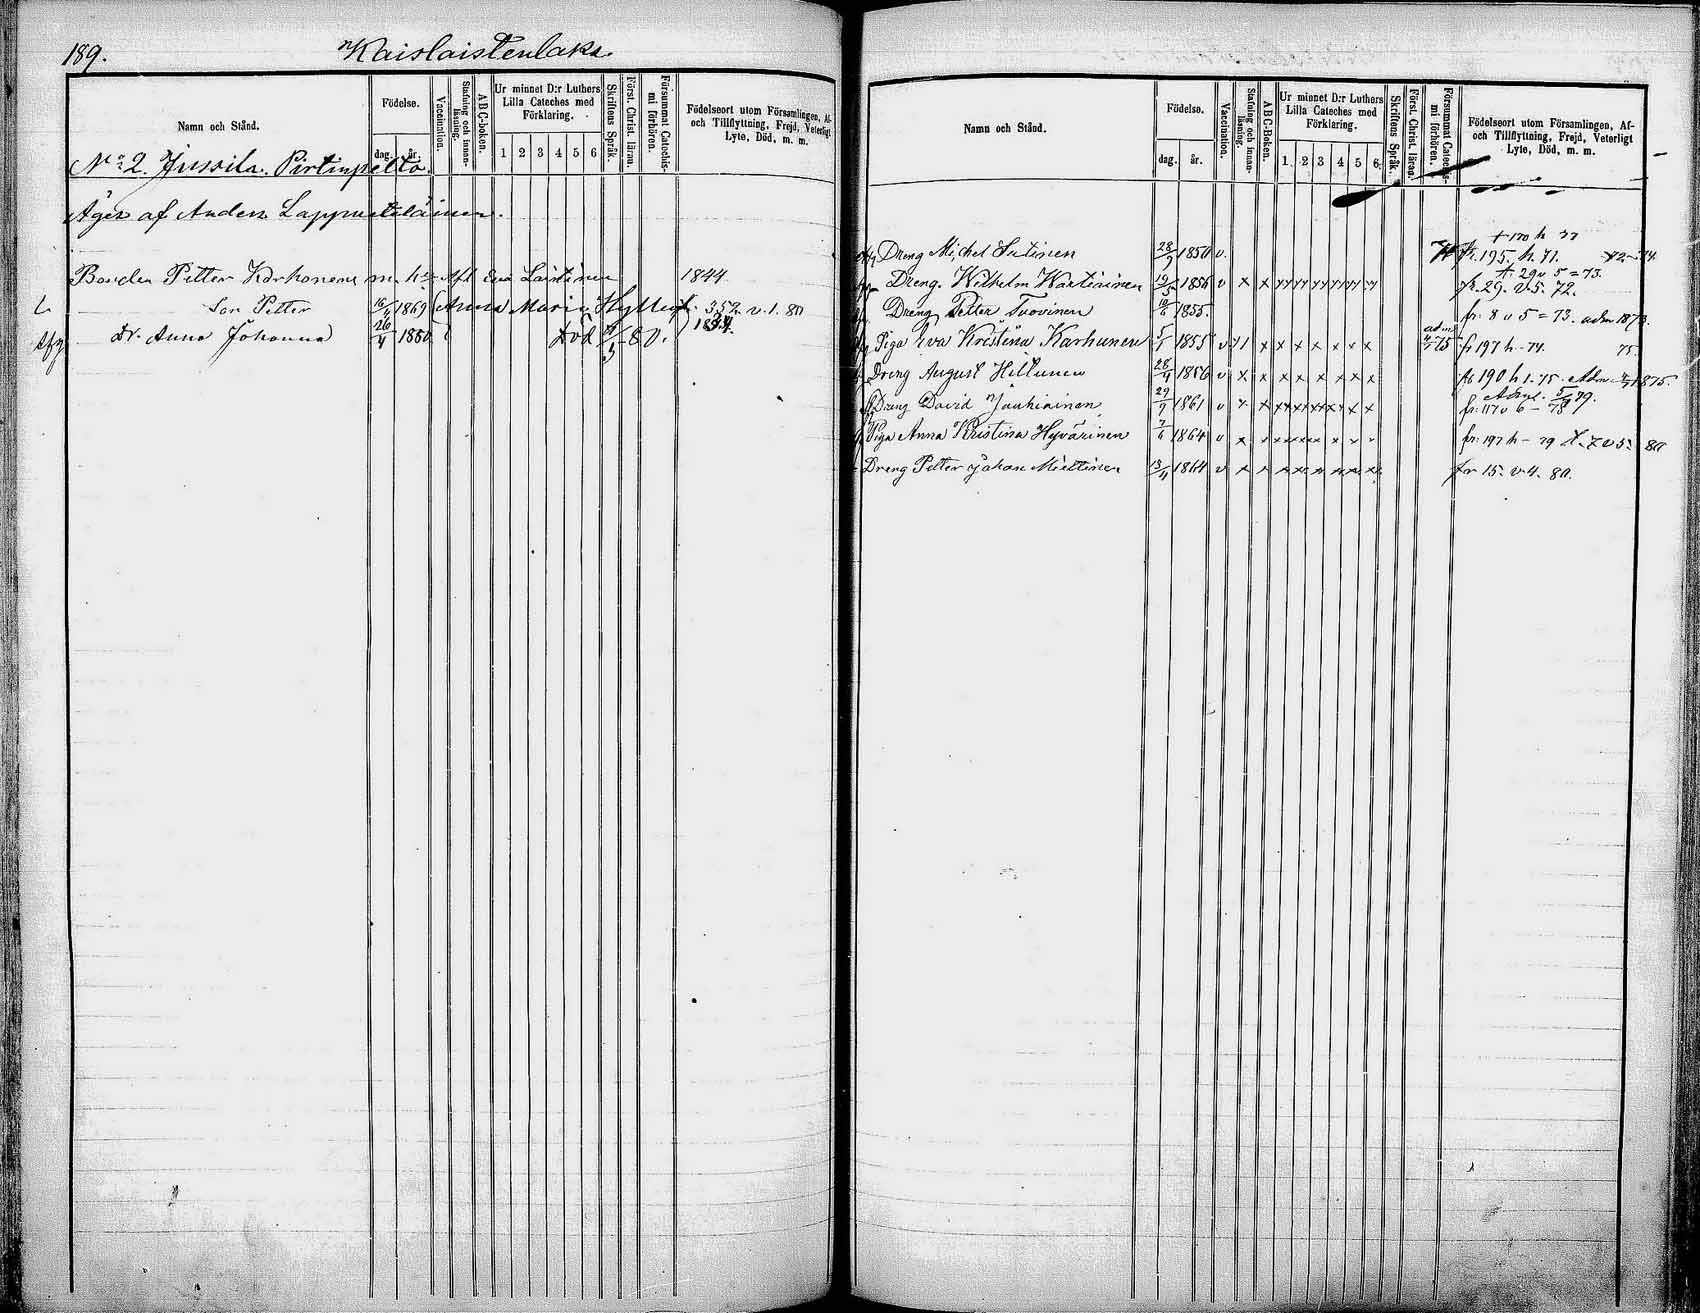 189.
Kaislaistenlaks
Namn och Stånd.
Födelse.
dag. år.
Vaccination.
Stafning och innan-läsning.
ABC-boken.
Ur minnet D:r Luthers Lilla Cateches med Förklaring.
1 2 3 4 5 6
Skriftens Språk.
Först. Christ. läran.
Försummat Catechis-mi förhören.
Födelseort utom Församlingen, Af-
och Tillflyttning, Frejd, Veterligt
Lyte, Död, m. m.
No 2. Jussila. Pirtinpelto.
Äges af Anders Lappeteläinen.
Bonden Petter Korhonens m. h:u Afl Eva Laitinen 1844
Son Petter 16/4 1869 (Anna Maria Hyttinen fr. 352 v. 1. 80
Dr. Anna Johanna 26/4 1880 Död /5 80. 1834.
Namn och Stånd.
Födelse.
dag. år.
Vaccination.
Stafning och innan-läsning.
ABC-Boken.
Ur minnet D:r Luthers Lilla Cateches med Förklaring.
1. 2 3 4 5 6.
Skriftens Språk.
Först. Christ. läran.
Försummat Catechis-mi förhören.
Födelseort utom Församlingen, Af-
och Tillflyttning, Frejd, Veterligt
Lyte, Död, m. m.
170 h 77
Dreng Michel Sutinen 28/9 1850 v. fr. 195. h. 71.
29 v 5 = 73.
Dreng. Wilhelm Kartiainen 19/5 1856 v x x fr. 29. v. 5. 72.
Dreng Petter Tuovinen 10/6 1855. fr: 8 v 5 = 73. adm 1873.
Piga Eva Kristina Karhunen 5/1 1855 v x x x x x x x adm 75 fr 197 h - 74. 75.
Dreng August Hiltunen 28/4 1856 v x x x x x x x x fr 190 h 1. 75. Adm 1875.
Adm. 79.
Dreng David Jauhiainen 29/9 1861 v x x fr: 117 v 6 - 78
Piga Anna Kristina Hyvärinen 7/6 1864 v x x fr: 197 h - 79 v 5. 80
Dreng Petter Johan Miettinen 13/4 1864 v x x fr 15. v. 4. 80.